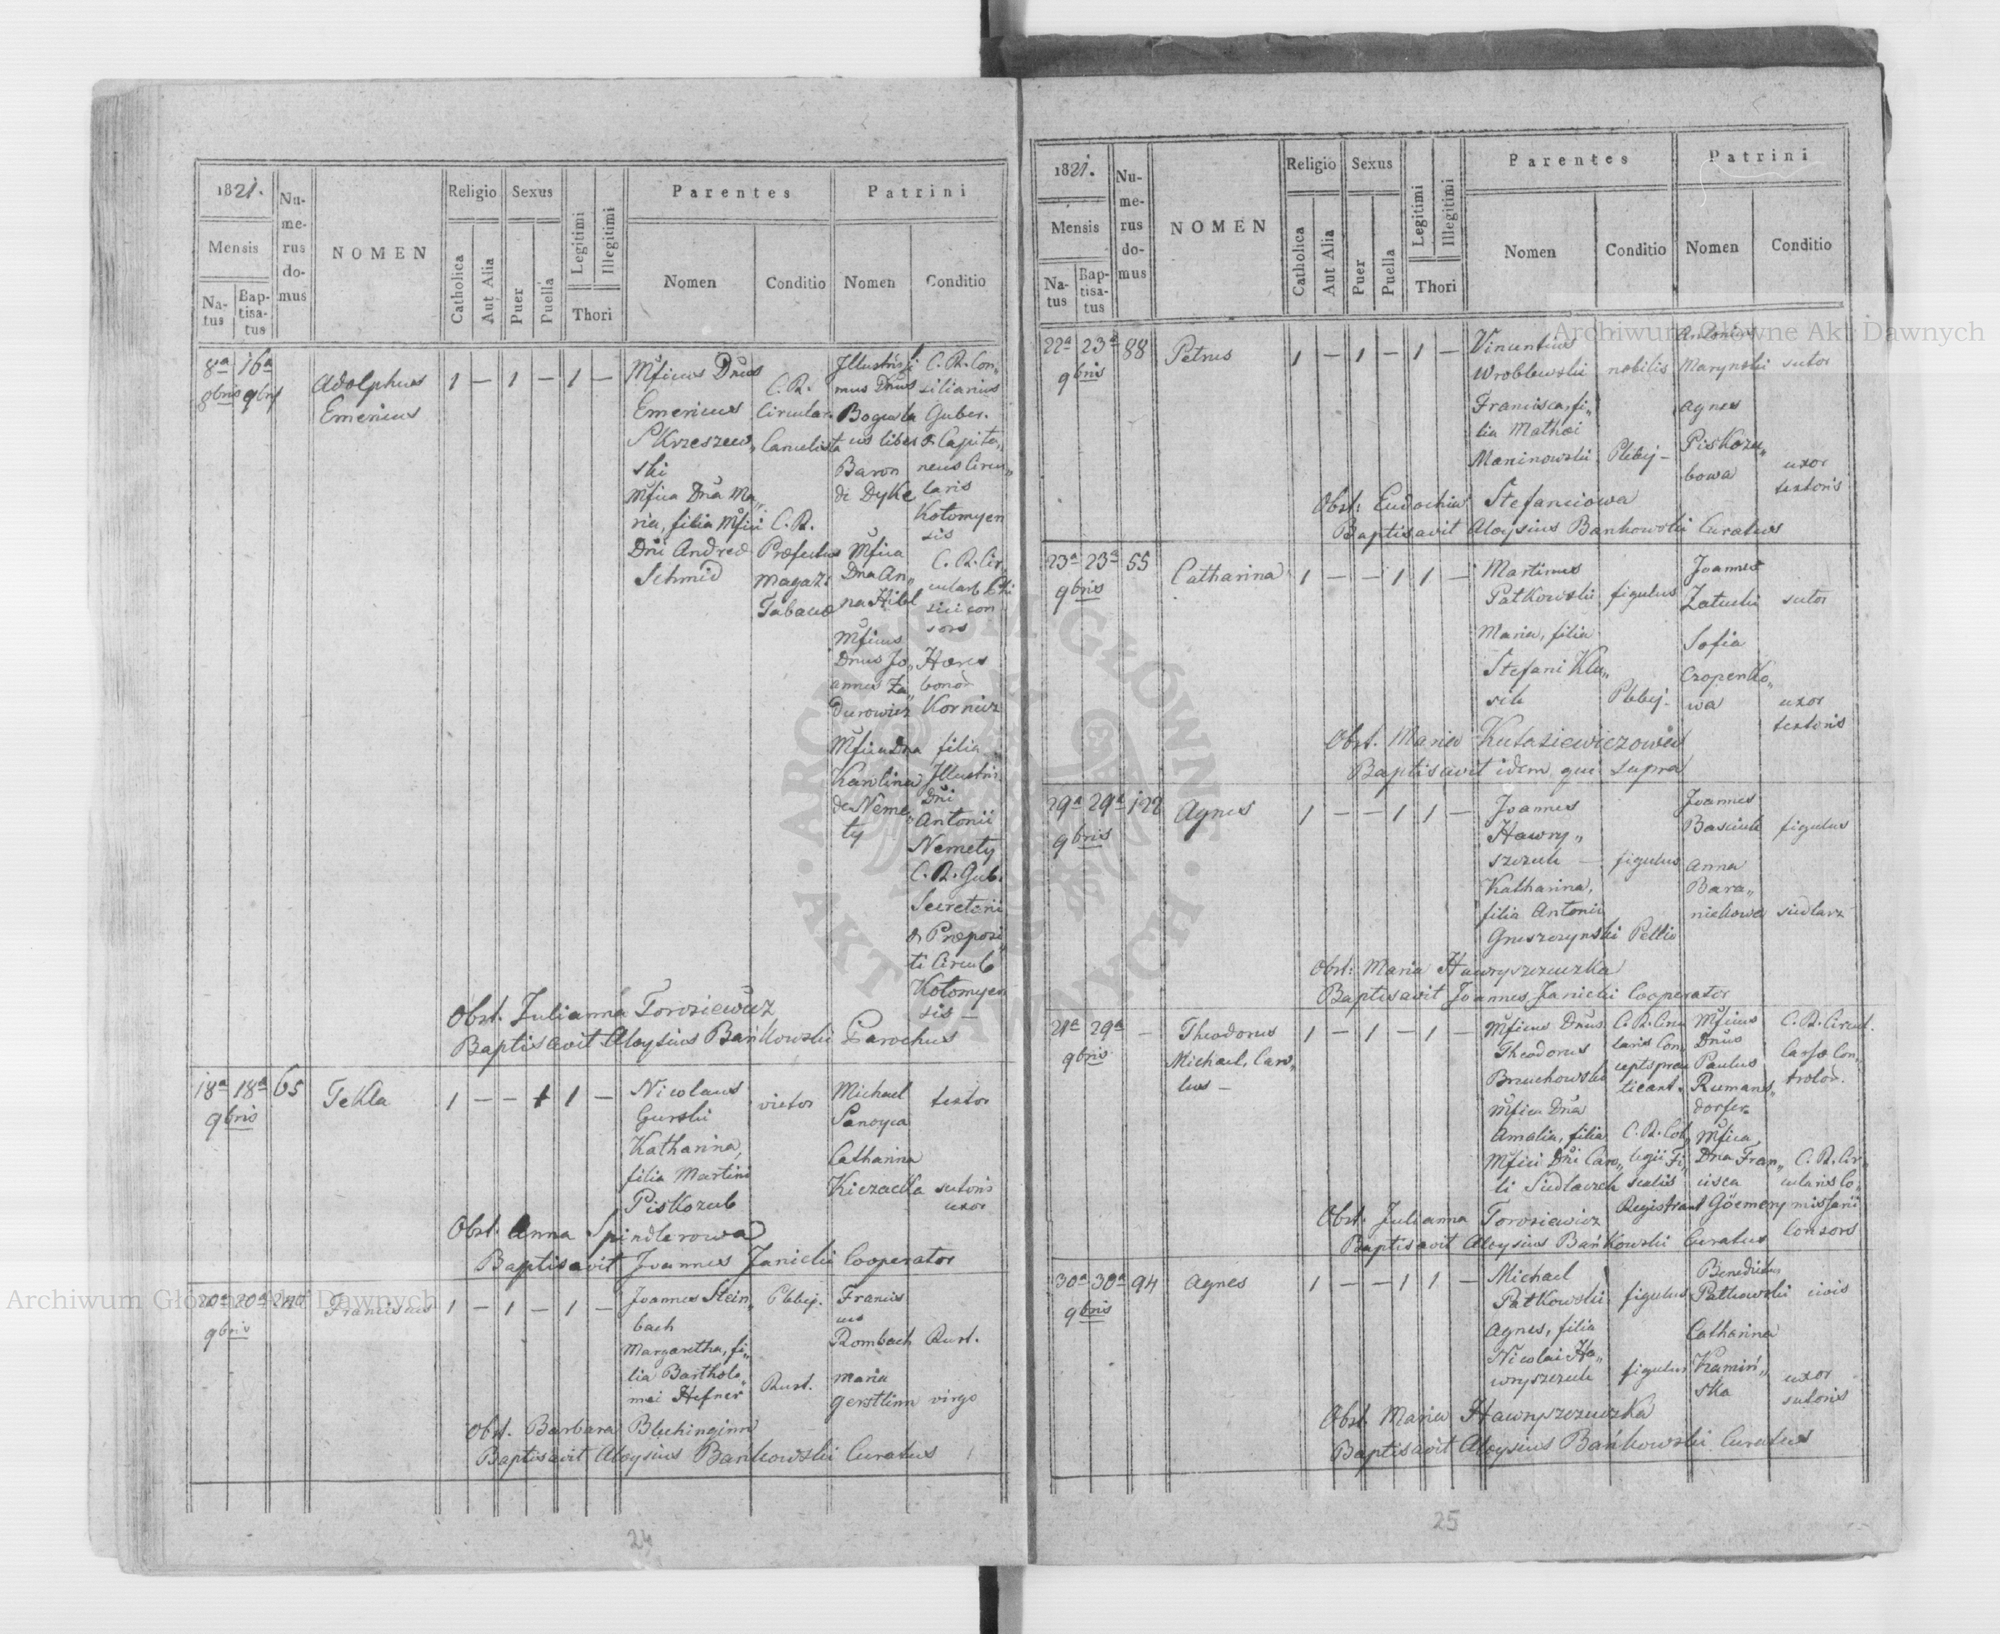 1821.
Mensis
Na-
tus
Bap-
tisa-
tus
Nu-
me-
rus
do-
mus
NOMEN
Religio
Catholica
Aut Alia
Sexus
Puer
Puella
Legitimi
Illegitimi
Thori
Parentes
Nomen
Conditio
Patrini
Nomen
Conditio
8a 16a
8bris 9bris
Adolphus
Emericus
1 — 1 — 1 —
Mficus Dnus
Emericus
Skrzeszew„
ski
Mfica Dna Ma„
ria, filia Mfici
Dni Andreæ
Schmid
C. R.
Circular.
Cancelista
C. R.
Præfectus
Magazi
Tabacæ
Illustrissi
mus Dnus
Bogusla
us liber
Baron
di Dyke
Mfica
Dna An„
na Hibl
Mficus
Dnus Jo„
annes Za„
durowicz
Mfica Dna
Karolina
de Neme„
ty
C. R. Con„
siliarius
Guber.
& Capita„
neus Circu„
laris
Kołomyen
sis
C. R. Cir„
con
sors
Hæres
bonor
Kornicz
filia
Illustris
Dni
Antonii
Nemety
C. R. Gub.
Secretarii
& Præposi
ti Circul
Kołomyen
sis —
Obst. Julianna Torosiewicz
Baptisavit Aloysius Bańkowski Parochus
18a 18a 65
9bris
Tekla
1 — — 1 1 —
Nicolaus
Gurski
Katharina,
filia Martini
Piskozub
vietor
Michael
Sanoyca
Catharina
Kiczacka
textor
sutoris
uxor
Obst. Anna Spindlerowa
Baptisavit Joannes Janicki Cooperator
20a 20a
9bris
Franciscus
1 — 1 — 1 —
Joannes Stein„
bach
Margaretha, fi„
lia Bartholo„
mei Hefner
Plebej.
Rust.
Francis
cus
Rombach
Maria
Gerstlinn
Rust.
virgo
Obst. Barbara Bluchinginn
Baptisavit Aloysius Bańkowski Curatus
24
1821.
Mensis
Na-
tus
Bap-
tisa-
tus
Nu-
me-
rus
do-
mus
NOMEN
Religio
Catholica
Aut Alia
Sexus
Puer
Puella
Legitimi
Illegitimi
Thori
Parentes
Nomen
Conditio
Patrini
Nomen
Conditio
22a 23a 88
9bris
Petrus
1 — 1 — 1 —
Vincentius
Wroblewski
Francisca, fi„
lia Mathæi
Maninowski
nobilis
Plebej —
Antonius
Marynski
Agnes
Piskozu„
bowa
sutor
uxor
textoris
Obst: Eudochia Stefanciowa
Baptisavit Aloysius Bankowski Curatus
23a 23a 55
9bris
Catharina
1 — — 1 1 —
Martinus
Patkowski
Maria, filia
Stefani Klu„
sik
figulus
Plebej.
Joannes
Zatuski
Sofia
Czopenko„
wa
sutor
uxor
textoris
Obst. Maria Kutasiewiczowa
Baptisavit idem qui supra
29a 29a 122
9bris
Agnes
1 — — 1 1 —
Joannes
Hawry„
szczuk —
Katharina,
filia Antonii
Gruszczynski
figulus
Pellio
Joannes
Basciuk
Anna
Bara„
niekowa
figulus
siedlarz
Obst: Maria Hawryszczuczka
Baptisavit Joannes Janicki Cooperator
21a 29a —
9bris
Theodorus
Michael, Caro„
lus —
1 — 1 — 1 —
Mficus Dnus
Theodorus
Bruchowski
Mfica Dna
Amalia, filia
Mfici Dni Caro„
li Siedlaczek
C. R. Circu
laris Con„
ceptsprac
ticant.
C. R. Col„
legii Fi„
scalis
Registrant
Mficus
Dnus
Paulus
Rumans„
dorfer
Mfica
Dna Fran„
cisca
Göemery
C. R. Circul.
Cassæ Con„
trolor.
C. R. Cir„
cularis Co„
missarii
Consors
Obst. Julianna Torosiewicz
Baptisavit Aloysius Bańkowski Curatus
30a 30a 94
9bris
Agnes
1 — — 1 1 —
Michael
Patkowski
Agnes, filia
Nicolai Ha„
wryszczuk
figulus
figulus
Benedictus
Patkowski
Catharina
Kamiń„
ska
civis
uxor
sutoris
Obst. Maria Hawryszczuczka
Baptisavit Aloysius Bańkowski Curatus
25
Archiwum Główne Akt Dawnych
Archiwum Główne Akt Dawnych
ARCHIWUM GŁÓWNE AKT DAWNYCH